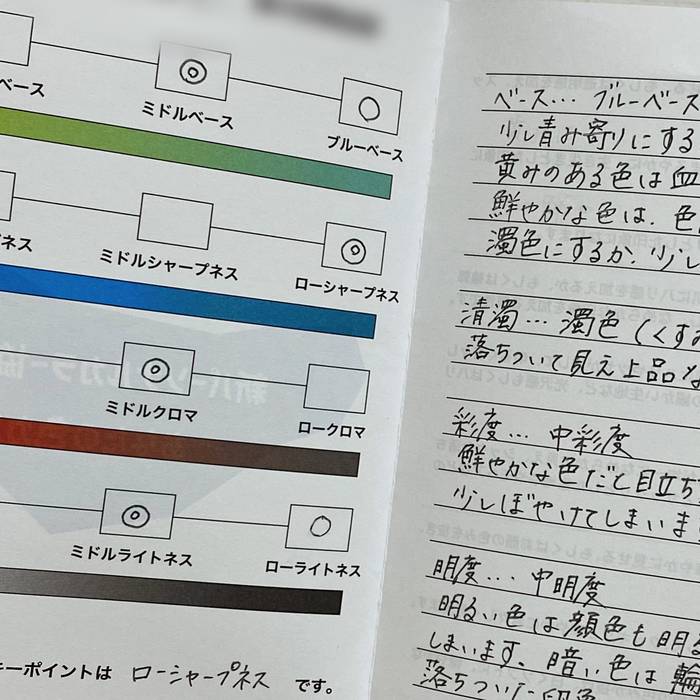 ベース
ミドルベース
ブルーベース
ネス
ミドルシャープネス
ローシャープネス
ミドルクロマ
ロークロマ
ミドルライトネス
ローライトネス
キーポイントは ローシャープネス です。
ベース… ブルーベース
少し青み寄りにする
黄みのある色は血
鮮やかな色は、色
濁色にするか、少し
清濁… 濁色(くすみ
落ちついて見え上品な
彩度… 中彩度
鮮やかな色だと目立ち
少しぼやけてしまいま
明度… 中明度
明るい色は顔色も明る
しまいます。暗い色は輪
落ちついた印象